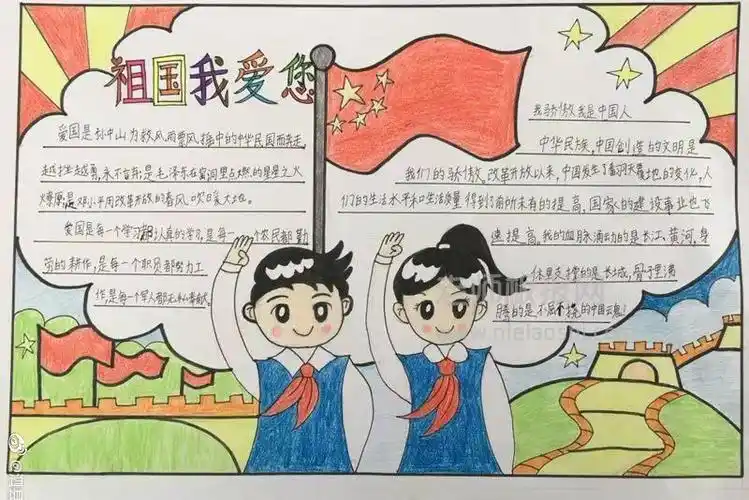 祖国我爱您
爱国是孙中山为救风雨飘摇中的中华民国而奔走,
越挫越勇,永不言弃;是毛泽东在窑洞里点燃的星星之火
燎原;是邓小平用改革开放的春风吹口大地。
爱国是每一个学习都认真的学习,是每一个农民都勤
劳的耕作,是每一个职员都努力工
作,是每一个军人都无私奉献。
我骄傲我是中国人
中华民族,中国创造的文明是
我们的骄傲。改革开放以来,中国发生了翻天覆地的变化,人
们的生活水平和生活质量得到了前所未有的提高,国家的建设事业也飞
速提高,我的血脉涌动的是长江、黄河,身
体里支撑的是长城,骨子里沸
腾的是不屈不挠的中国云魂!